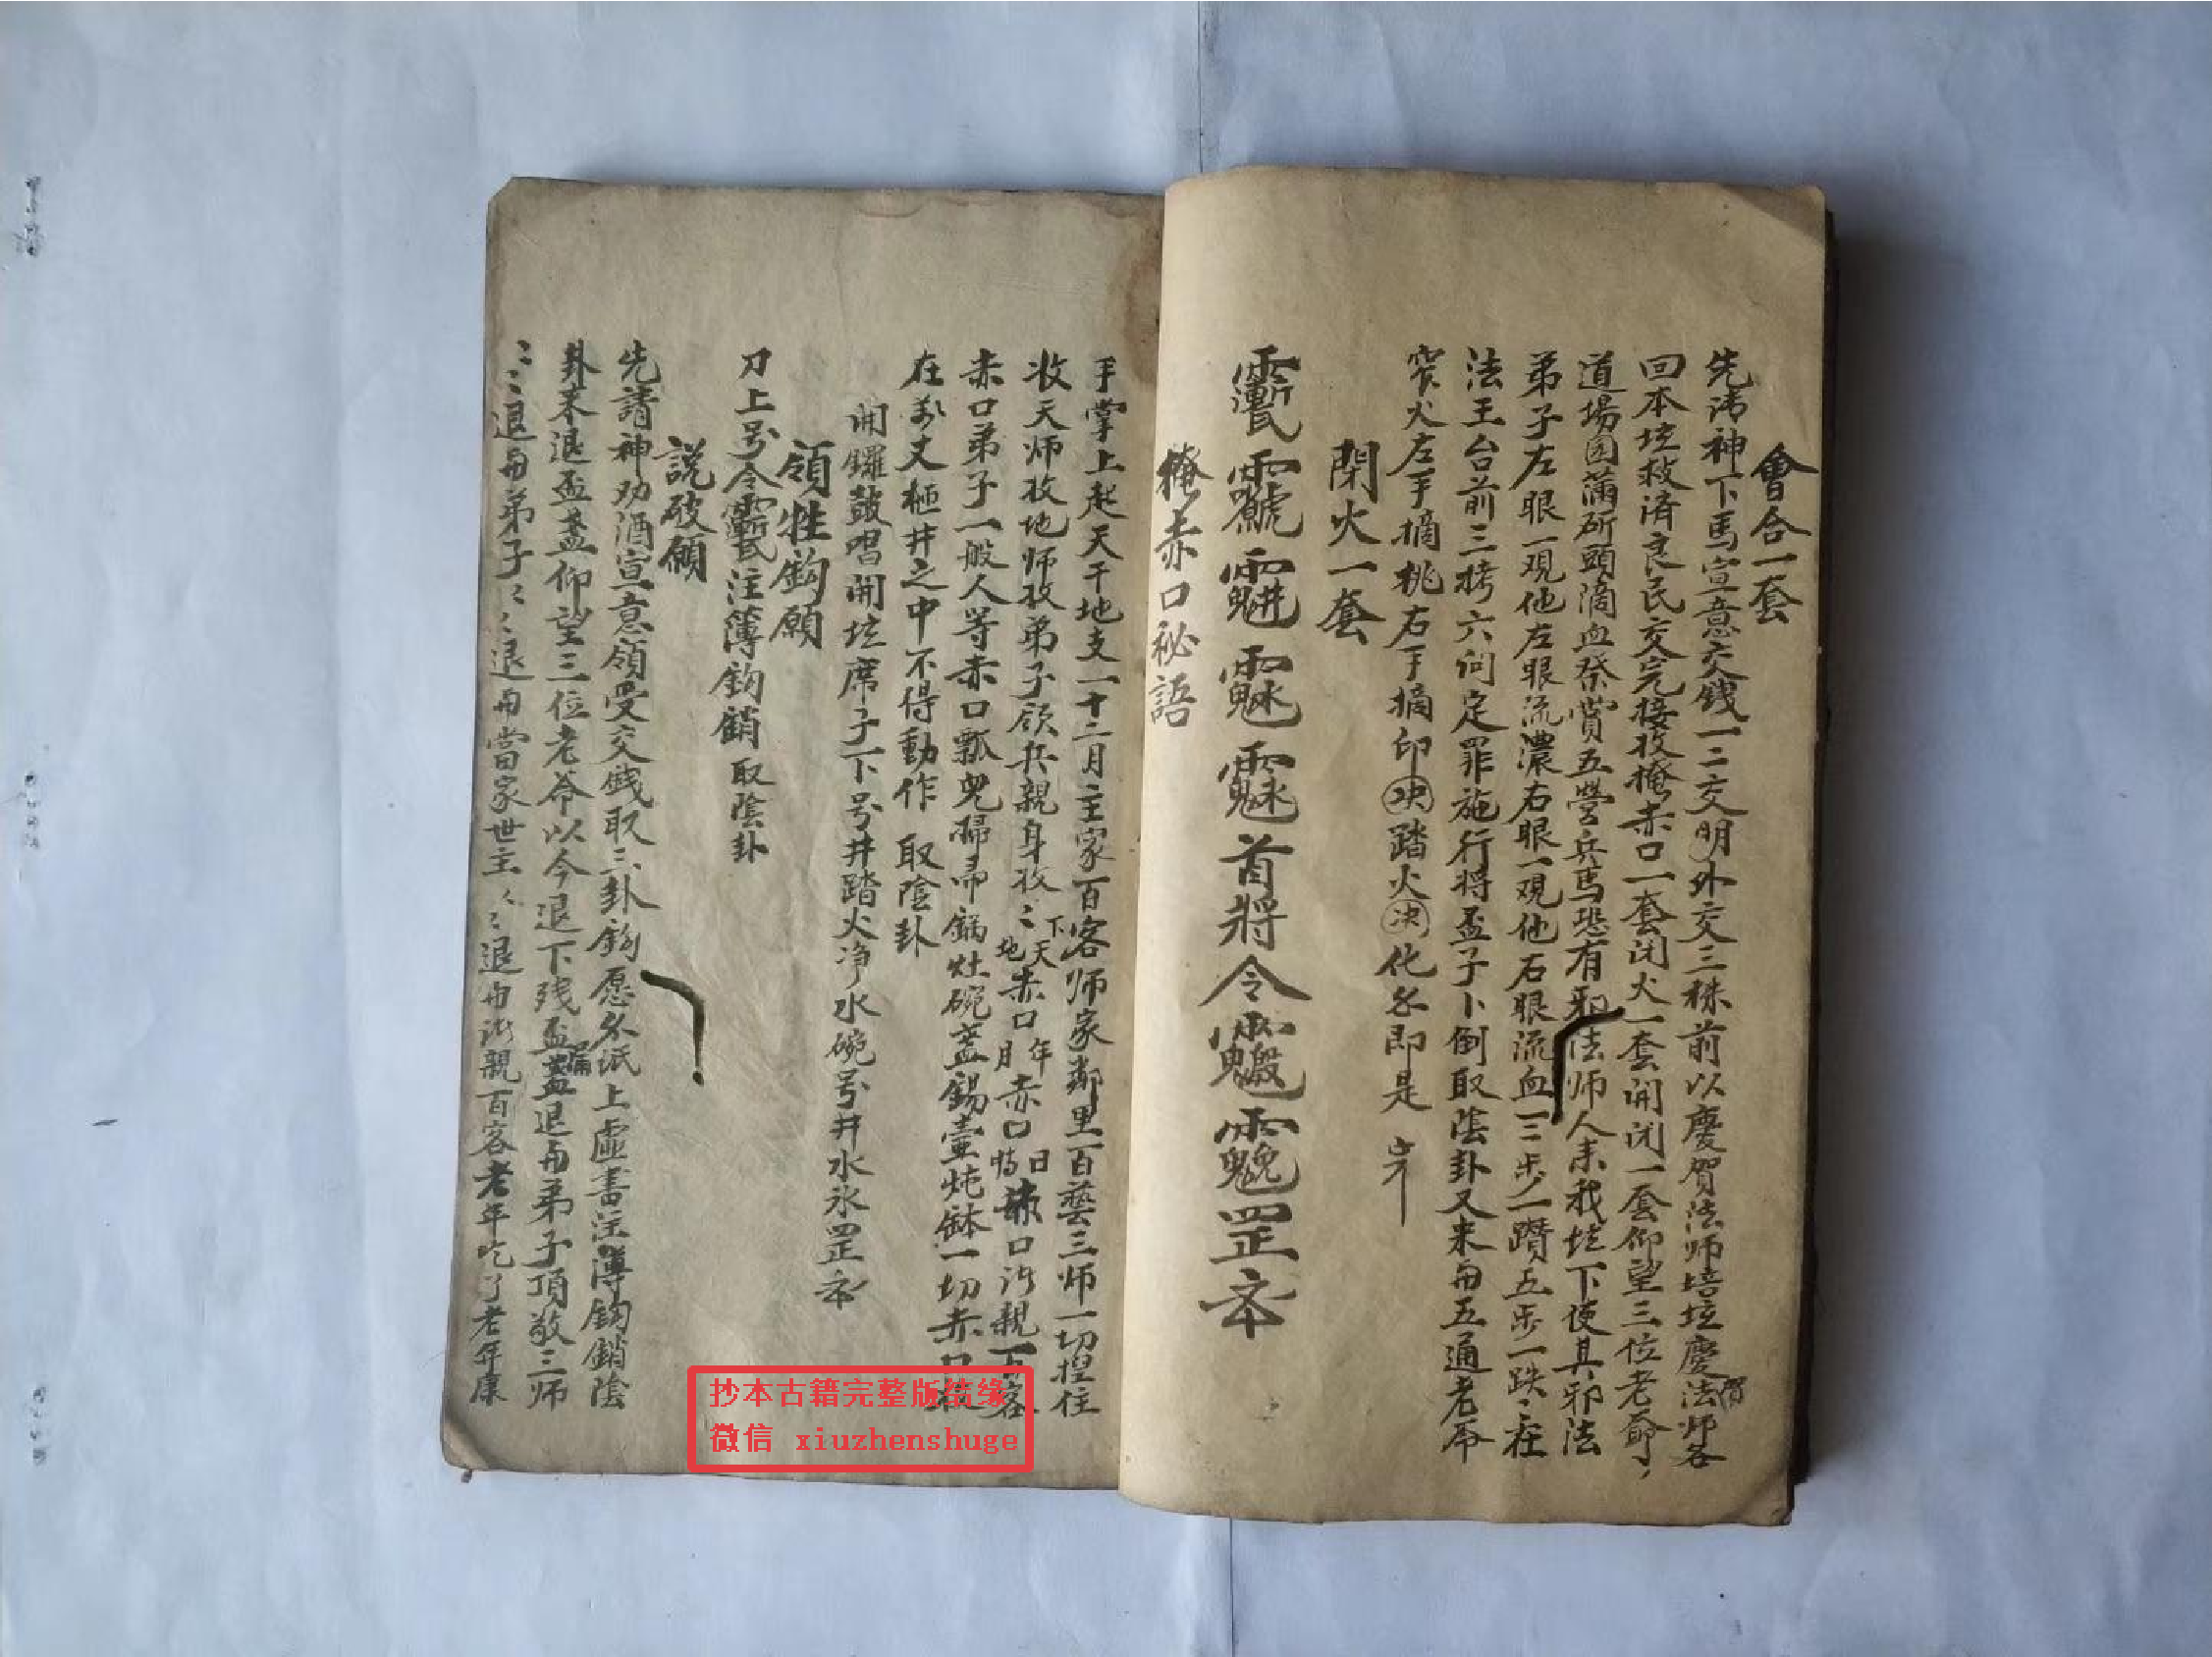 會合一套
先請神下馬宣意交錢一二交明外交三株前以慶賀法师培坛慶賀法师各
回本坛救済良民交完接收掩赤口一套闭火一套開闭一套仰望三位老爺了
道場园滿斫頭滴血祭賞五營兵馬恐有邪法师人来我坛下使其邪法
弟子左眼一观他左眼流濃右眼一观他右眼流血三步一躓五步一跌在
法王台前三拷六问定罪施行将盃子卜倒取陰卦又来与五通老爷
窄火左手摘桃右手摘印决踏火决化水即是
閉火一套
首將令 罡
掩赤口秘語
手掌上起天干地支一十二月主家百客师家鄰里百藝三师一切揑住
收天师收地师收弟子领兵親身收下天地赤口年月赤口日時赤口 親百客
赤口弟子一般人等赤口瓢兜掃帚鍋灶碗盖錫壺炖缽一切赤口
在萬丈 井之中不得動作 取陰卦
開鑼鼓唱開坛席子下号井踏火净水碗号井水氷罡
領牲鈎願
刀上号令 注簿鈎銷取陰卦
説破願
先請神劝酒宣意領受交錢取三卦鈎愿水 上虚書注簿鈎銷陰
卦未退盃盞仰望三位老爷以今退下残盃 盞退与弟子頂敬三师
退与弟子 退与當家世主 退与 親百客老年吃了老年康
抄本古籍完整版结缘
微信 xiuzhenshuge